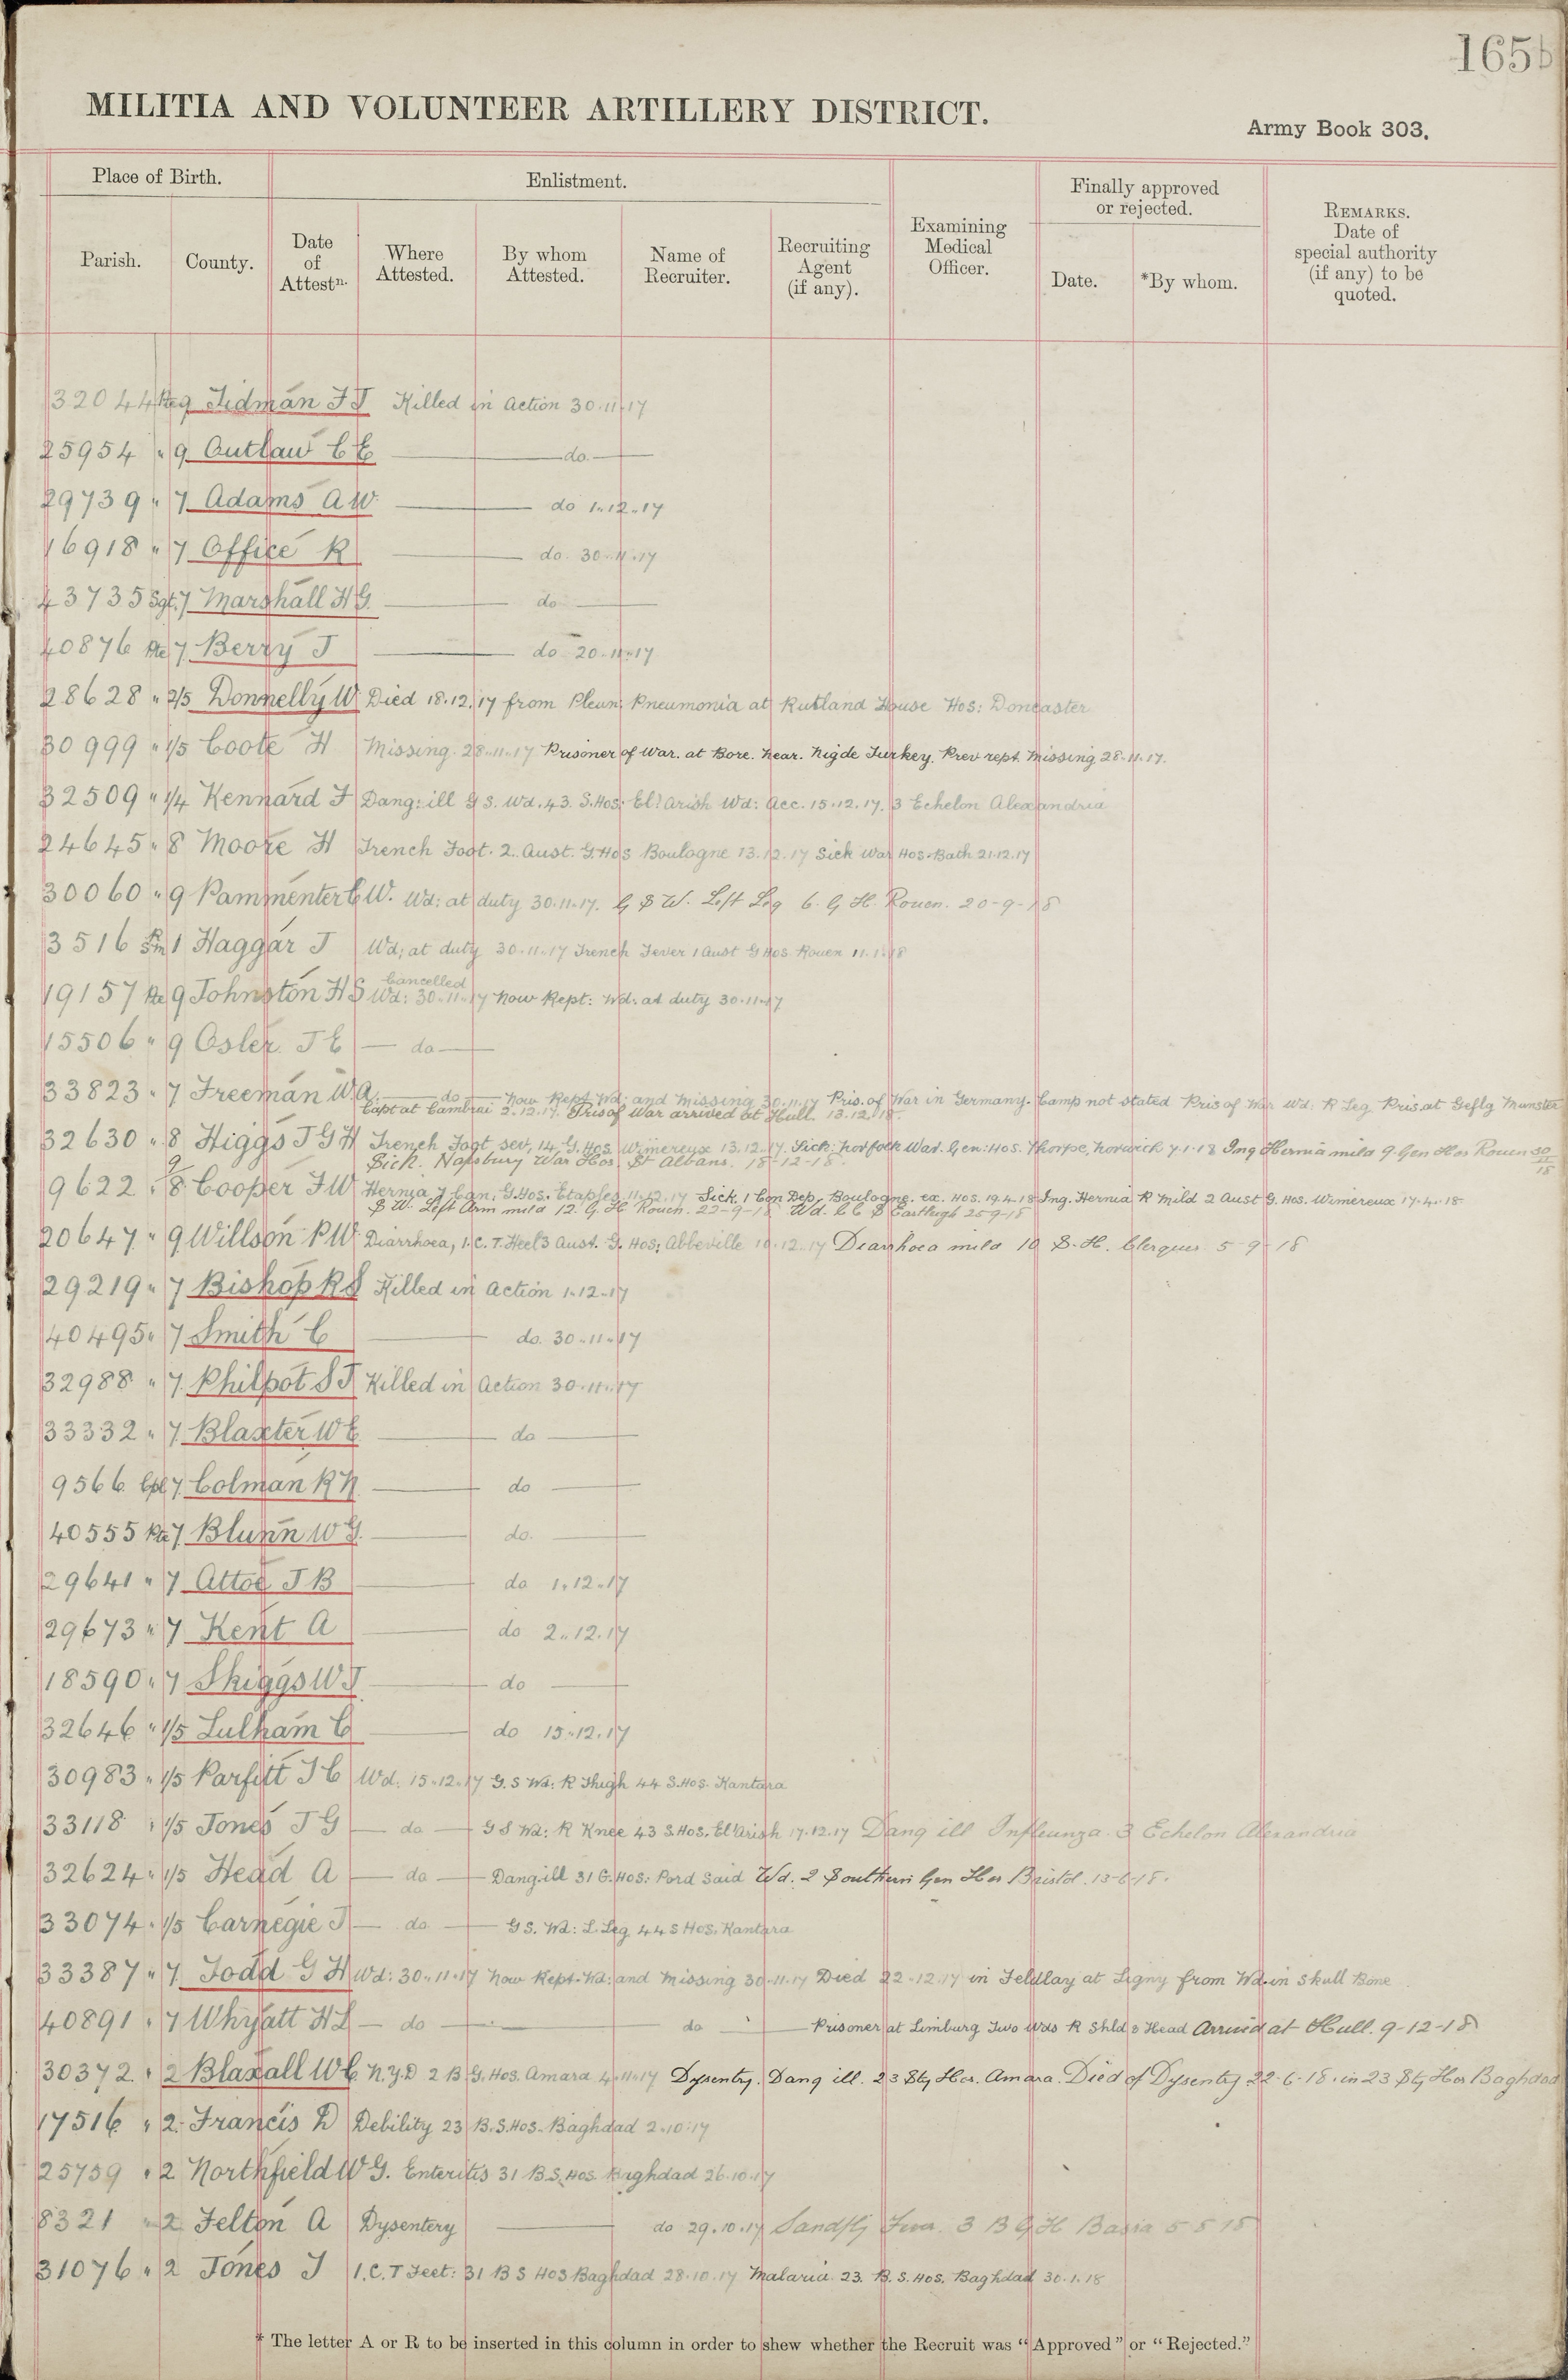 165b
MILITIA AND VOLUNTEER ARTILLERY DISTRICT.
Army Book 303.
Place of Birth. Enlistment. Finally approved or rejected.
Parish. County. Date of Attestn. Where Attested. By whom Attested. Name of Recruiter. Recruiting Agent (if any). Examining Medical Officer. Date. *By whom. REMARKS. Date of special authority (if any) to be quoted.
32044 Pte 9 Tidman F J Killed in Action 30.11.17
25954 " 9 Outlaw C E do.
29739 " 7 Adams A W. do 1.12.17
16918 " 7 Office R do. 30.11.17
43735 Sgt. 7 Marshall H G. do
40876 Pte 7 Berry J do 20.11.17
28628 " 2/5 Donnelly W Died 18.12.17 from Pleun: Pneumonia at Rutland House Hos: Doncaster
30999 " 1/5 Coote H Missing 28.11.17 Prisoner of War. at Bore. Near. Nigde Turkey. Prev rept. Missing 28.11.17.
32509 " 1/4 Kennard F Dang: ill G S. Wd. 43. S. Hos: El: Arish Wd: Acc. 15.12.17. 3 Echelon Alexandria
24645 " 8 Moore H Trench Foot. 2. Aust. G. Hos Boulogne 13.12.17 Sick War Hos. Bath 21.12.17
30060 " 9 Pammenter C W. Wd: at duty 30.11.17. G S W. Left Leg 6. G H. Rouen. 20-9-18
3516 1 Haggar J Wd; at duty 30.11.17 Trench Fever 1 Aust G Hos Rouen 11.1.18
Cancelled
19157 Pte 9 Johnston H S Wd: 30.11.17 Now Rept: Wd: at duty 30.11.17
15506 " 9 Osler. J E do
33823 " 7 Freeman W A. do Now Rept. Wd: and Missing 30.11.17 Pris. of War in Germany. Camp not stated Pris of War Wd: R Leg Pris. at Geflg Munster
Capt at Cambrai 2.12.17. Pris of War arrived at Hull. 13.12.18
32630 " 8 Higgs J G H Trench Foot sev, 14, G. Hos Wimereux 13.12.17. Sick: Norfolk War. Gen: Hos. Thorpe, Norwich 7.1.18 Ing Hernia mild 9. Gen Hos Rouen 30/11/18
Sick. Napsbury War Hos. St Albans. 18-12-18.
9622 " 9/8 Cooper F W Hernia 7 Can. G. Hos. Etaples 11.12.17 Sick. 1 Con Dep. Boulogne. ex. Hos. 19.4.18 Ing. Hernia R Mild 2 Aust G. Hos. Wimereux 17.4.18
S W. Left Arm mild 12. G. H. Rouen. 22-9-18 Wd. C C S 25-9-18
20647 " 9 Willson P W Diarrhoea, I. C. T. Heel 3 Aust. G. Hos; Abbeville 10.12.17 Diarrhoea mild 10 S. H. 5-9-18
29219 " 7 Bishop R S Killed in Action 1.12.17
40495 " 7 Smith C do. 30.11.17
32988 " 7. Philpot S J Killed in Action 30.11.17
33332 " 7 Blaxter W E do
9566 Cpl 7. Colman R H do
40555 Pte 7 Blunn W G. do.
29641 " 7 Attoe J B do 1.12.17
29673 " 7 Kent A do 2.12.17
18590 " 7 Skiggs W J do
32646 " 1/5 Lulham C do 15.12.17
30983 " 1/5 Parfitt J C Wd. 15.12.17 G. S Wd: R Thigh 44 S. Hos. Kantara
33118 " 1/5 Jones J G do G S Wd: R Knee 43 S. Hos. El Arish 17.12.17 Dang ill Infleunza. 3 Echelon Alexandria
32624 " 1/5 Head A do Dang. ill 31 G. Hos: Pord Said Wd. 2 Southern Gen Hos Bristol. 13-6-18.
33074 " 1/5 Carnegie J do G S. Wd: L. Leg. 44 S Hos. Kantara
33387 " 7. Todd G H Wd: 30.11.17 Now Rept. Wd: and Missing 30.11.17 Died 22.12.17 in Feldlay at Ligny from Wd. in Skull Bone
40891 " 7 Whyatt H L do do Prisoner at Limburg Two Wds R Shld & Head Arrived at Hull. 9-12-18
30372 " 2 Blaxall W C N. Y. D 2 B. G. Hos. Amara 4.11.17 Dysentry. Dang ill. 23 Sty Hos. Amara. Died of Dysentry 22-6-18. in 23 Sty Hos Baghdad
17516 " 2. Francis D Debility 23 B. S. Hos. Baghdad 2.10.17
25759 " 2 Northfield W G. Enteritis 31 B. S. Hos Baghdad 26.10.17
8321 " 2 Felton A Dysentery do 29.10.17 Sandfly Fever. 3 B G H Basra 5 8 18
31076 " 2 Jones J I. C. T Feet: 31 B S Hos Baghdad 28.10.17 Malaria 23. B. S. Hos. Baghdad 30.1.18
* The letter A or R to be inserted in this column in order to shew whether the Recruit was "Approved" or "Rejected."